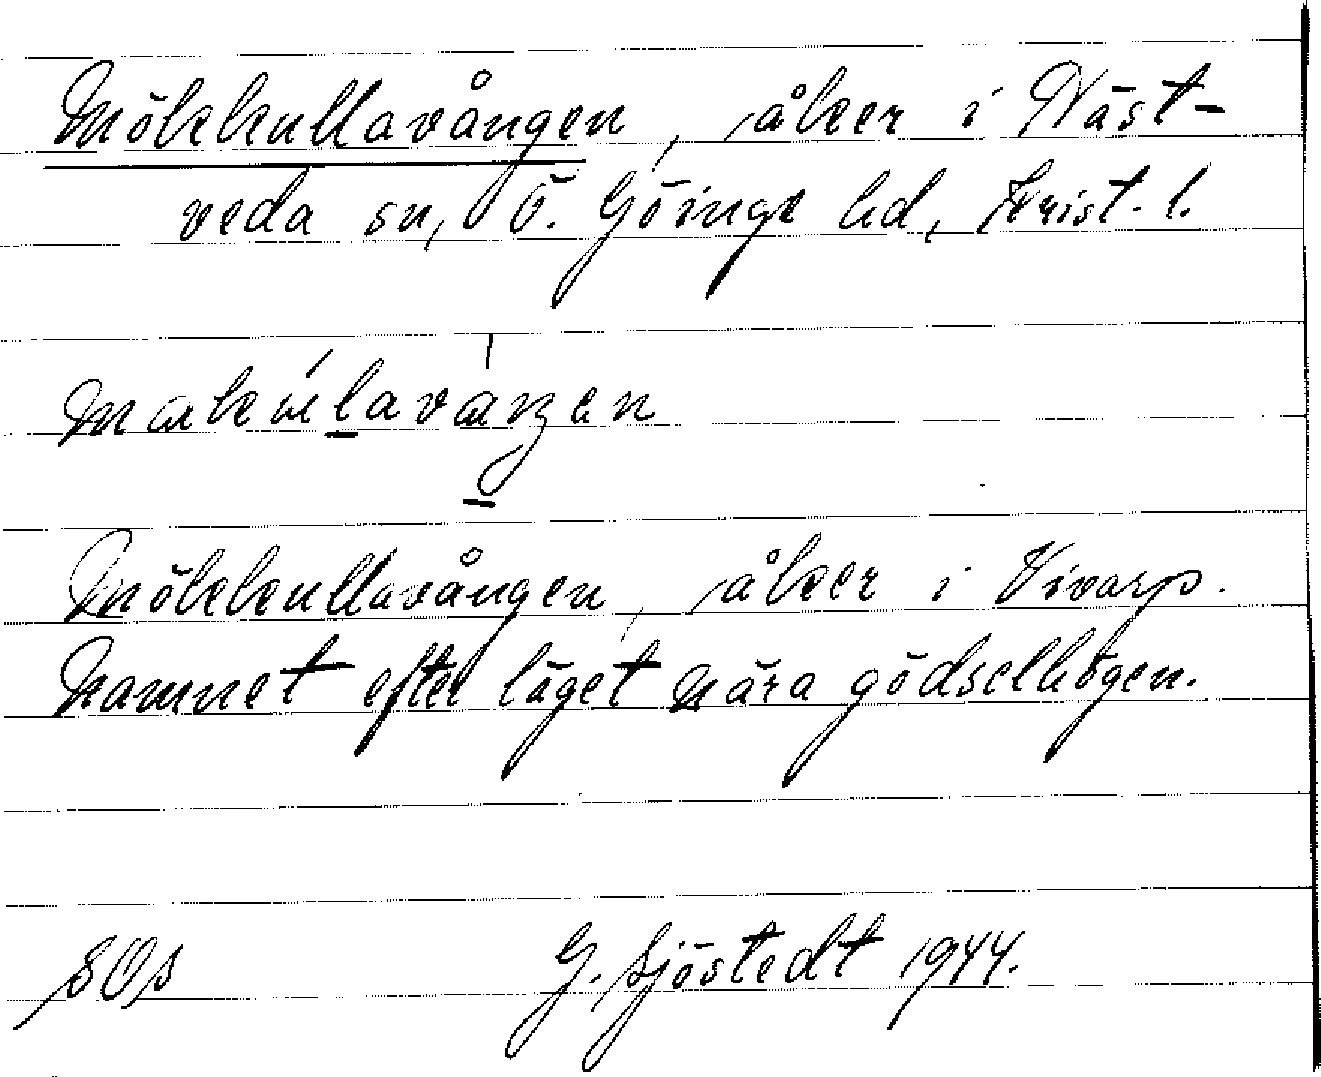 Mökkullavången, åker i Näst-
veda sn, Ö. Göinge hd, Krist. l.
Mökkullavången, åker i Vivarp.
Namnet efter läget nära gödselhögen.
SOS G. Sjöstedt 1944.